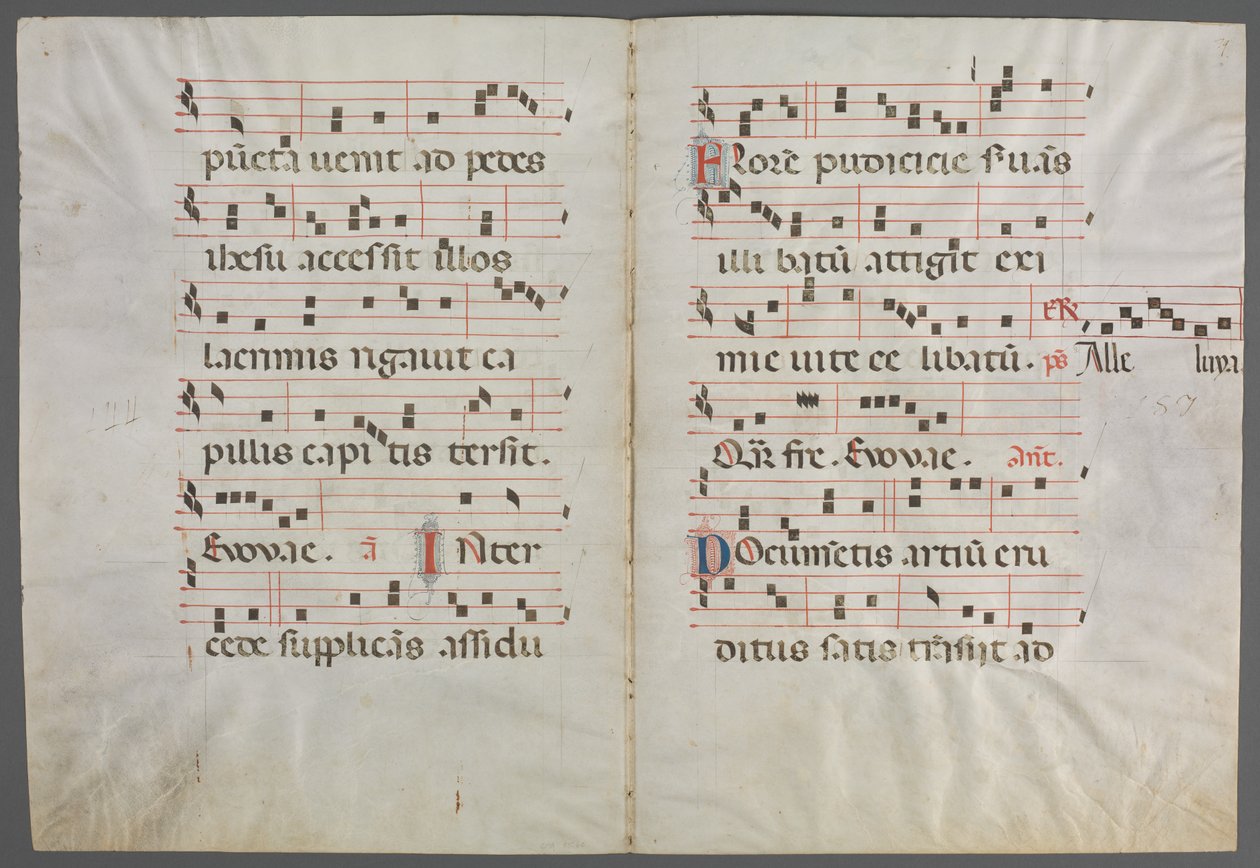 pūcta uenit ad pedes
ihesu accessit illos
lacrimis rigauit ca
pillis capitis tersit.
Evovae. ā INter
cede supplicās assidu
FLore pudicicie suās
illibatū attigit exi
mie uite ee libatū. ps Alle luya.
Evovae. Ant.
DOcumētis artiū eru
ditus satis trāsiit ad